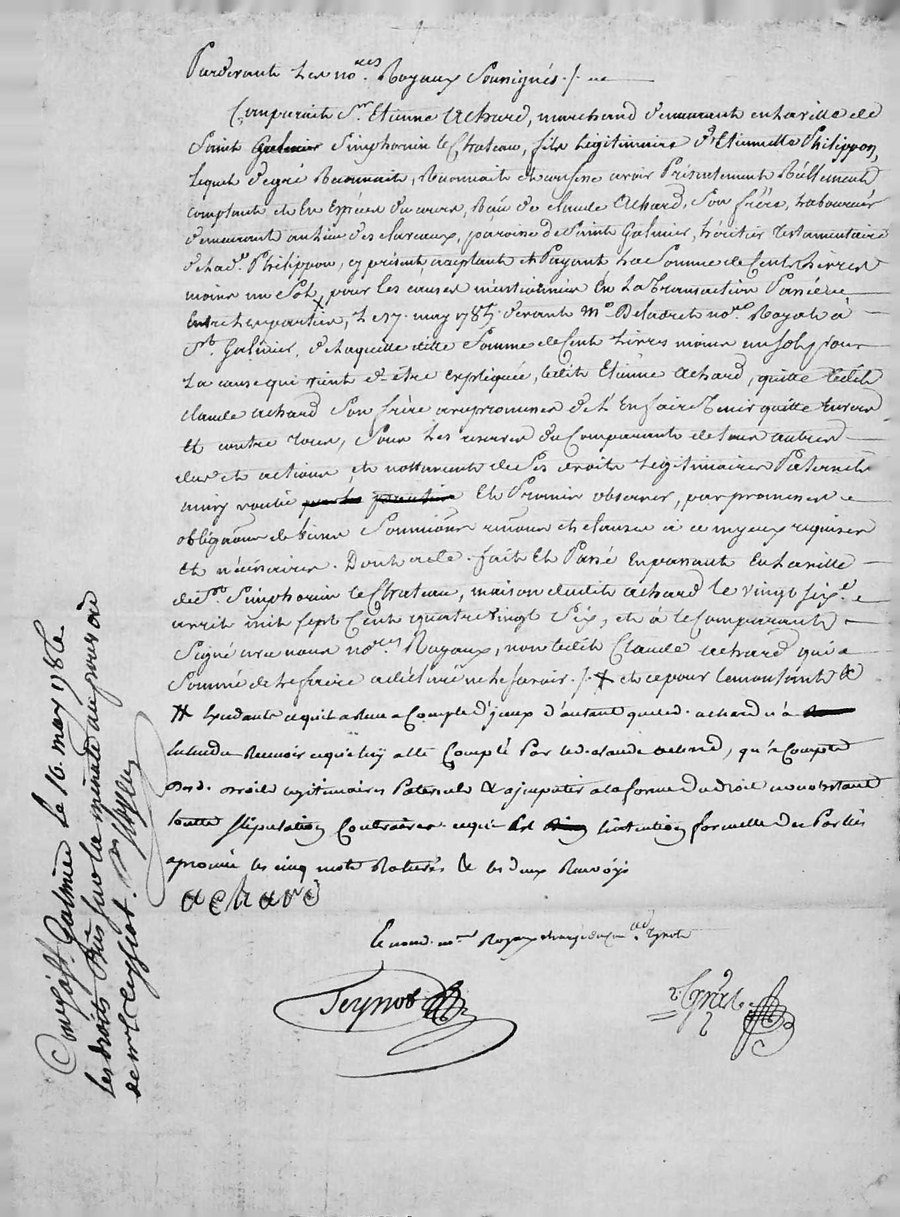 Pardevant Les no.res Royaux Soussignés ./. 
Comparait Sr. Etienne Achard, marchand demeurant en la ville de
Saint Galmier Simphorien le Chateau, fils légitimaire d'Etiennette Philippon,
Lequel de gré Reconnait, et confesse avoir Présentement Réellement
comptant et En Espèces du cours, Reçu de claude Achard, Son frère, Laboureur
demeurant au lieu des paroisse de Saint Galmier, héritier Testamentaire
de lad. Philippon, cy présent, acceptant et Payant La Somme de Cent Livres
moins un Sol, pour les causes mentionnées En La Transaction Passée
Entre Les parties, Le 17. may 1785. devant Me. no.re Royal à
St. Galmier, de laquelle ditte Somme de Cent Livres moins un sol, pour
La cause qui vient d'être expliquée, ledit Etienne Achard, quitte ledit
claude Achard Son frère avec promesse de L'En faire Tenir quitte Envers
Et contre tous, Sous Les reserves du Comparant de tous autres
dus et actions, et nottamment de Ses droits Légitimaires Paternels
ainsy voulu Et Promis observer, par promesse
obligations de biens Soumissions et clauses à ce requises
Et nécessaires. Dont acte. fait Et Passé En la ville
de St. Simphorien le Chateau, maison dudit achard le vingt six.
avril mil sept Cent quatre vingt Six, et à le Comparant
Signé avec nous no.res Royaux, non ledit Claude achard qui a
Sommé de Le faire a déclaré ne Le Savoir ./. et ce pour le montant
Excedant ce qui a Compte d'autant que led. achard n'a
Entendu Recevoir ce qui luy a été Compté Par led. claude achard, qu'à Compte
desd. droits légitimaires Paternels & a imputer a la forme du droit nonobstant
toutte stipulation Contraire. ce qui Est l'intention formelle des Parties
aprouvé les cinq mots Raturés & les deux Renvoys
achard
le no.re Royal
Peynot
Con.lé à St. Galmier Le 16. may 1786.
les droits sur la minute au pouvoir
de me